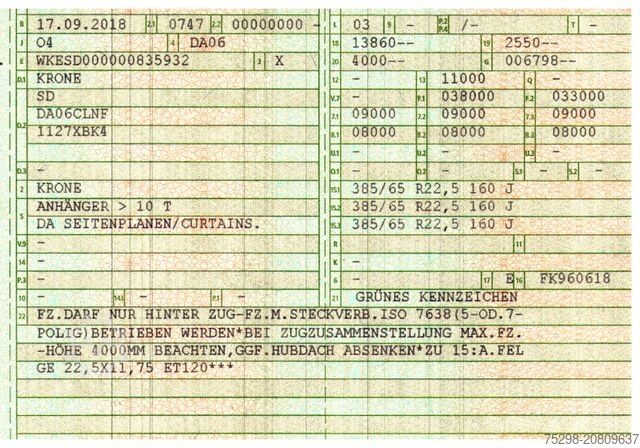 B 17.09.2018 2.1 0747 2.2 00000000 - L 03 9 - P.2 P.4 -/- T -
J O4 4 DA06 18 13860-- 19 2550--
E WKESD000000835932 3 X 20 4000-- G 006798--
D.1 KRONE 12 - 13 11000 Q -
SD V.7 - F.1 038000 F.2 033000
D.2 DA06CLNF 7.1 09000 7.2 09000 7.3 09000
1127XBK4 8.1 08000 8.2 08000 8.3 08000
U.1 - U.2 - U.3 -
D.3 - O.1 - O.2 - S.1 - S.2 -
2 KRONE 15.1 385/65 R22,5 160 J
5 ANHÄNGER > 10 T 15.2 385/65 R22,5 160 J
DA SEITENPLANEN/CURTAINS. 15.3 385/65 R22,5 160 J
V.9 - R - 11
14 - K -
P.3 - 6 - 17 E 16 FK960618
10 - 14.1 - P.1 - 21 GRÜNES KENNZEICHEN
22 FZ.DARF NUR HINTER ZUG-FZ.M.STECKVERB.ISO 7638(5-OD.7-
POLIG)BETRIEBEN WERDEN*BEI ZUGZUSAMMENSTELLUNG MAX.FZ.
-HÖHE 4000MM BEACHTEN,GGF.HUBDACH ABSENKEN*ZU 15:A.FEL
GE 22,5X11,75 ET120***
75298-20809637